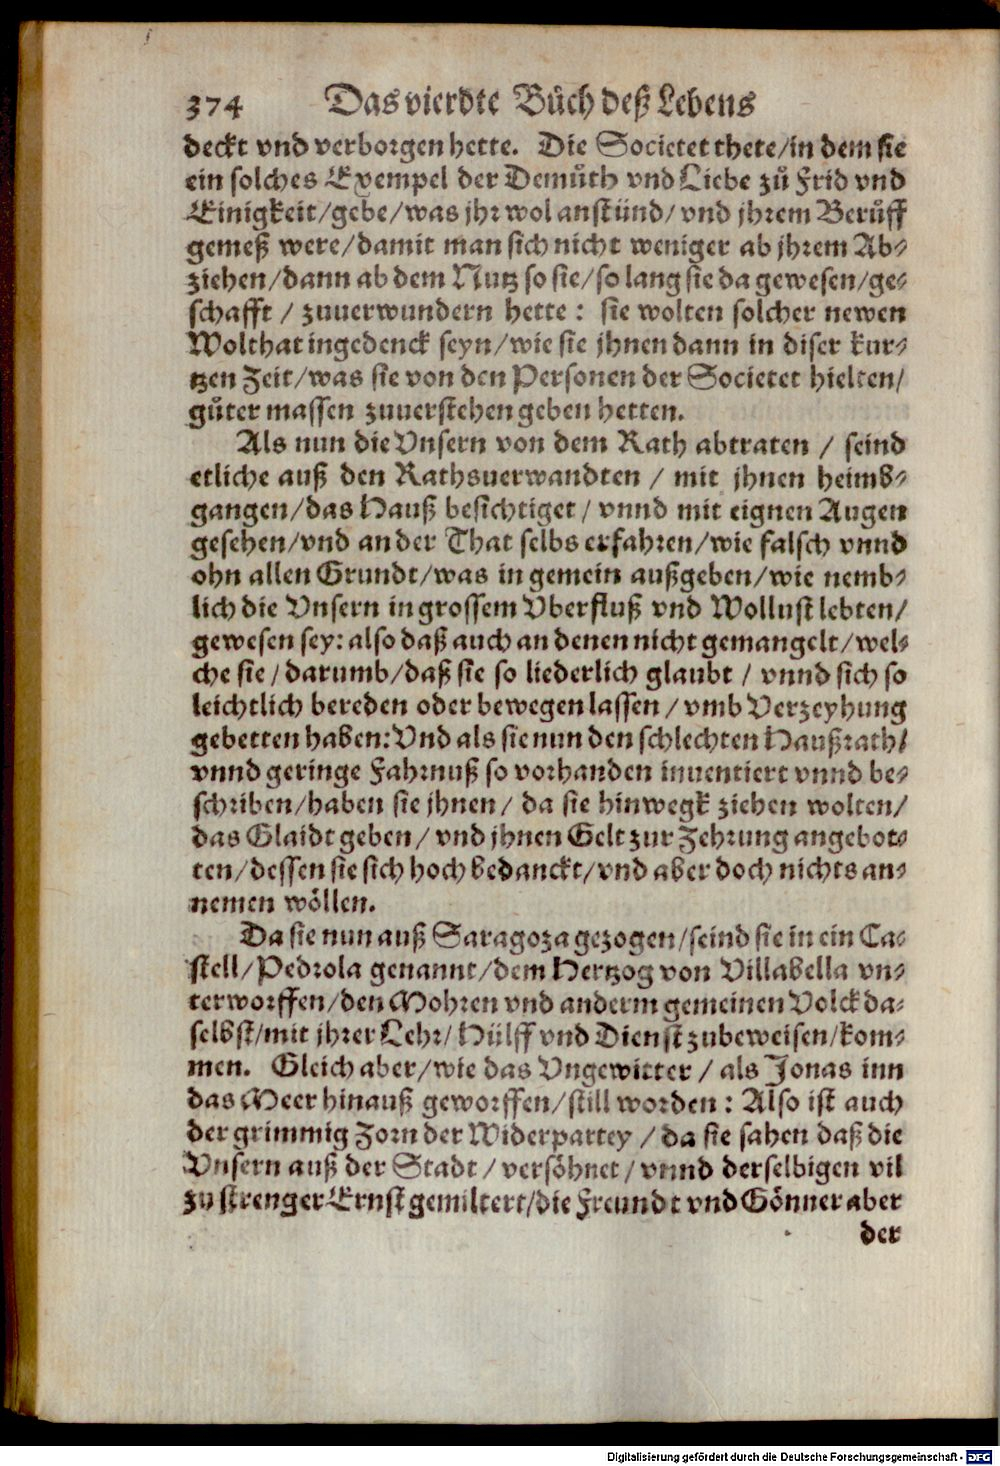 374 Das vierdte Bůch deß Lebens
deckt vnd verborgen hette. Die Societet thete/in dem sie
ein solches Exempel der Demůth vnd Liebe zů Frid vnd
Einigkeit/gebe/was jhr wol anstünd/ vnd jhrem Berůff
gemeß were/damit man sich nicht weniger ab jhrem Ab-
ziehen/dann ab dem Nutz so sie/so lang sie da gewesen/ge-
schafft / zuuerwundern hette : sie wolten solcher newen
Wolthat ingedenck seyn/wie sie jhnen dann in diser kur-
tzen Zeit/was sie von den Personen der Societet hielten/
gůter massen zuuerstehen geben hetten.
Als nun die Vnsern von dem Rath abtraten / seind
etliche auß den Rathsuerwandten / mit jhnen heimb-
gangen/das Hauß besichtiget / vnnd mit eignen Augen
gesehen/vnd an der That selbs erfahren/wie falsch vnnd
ohn allen Grundt/was in gemein außgeben/wie nemb-
lich die Vnsern in grossem Vberfluß vnd Wollust lebten/
gewesen sey: also daß auch an denen nicht gemangelt/wel-
che sie/darumb/daß sie so liederlich glaubt / vnnd sich so
leichtlich bereden oder bewegen lassen / vmb Verzeyhung
gebetten haben: Vnd als sie nun den schlechten Haußrath/
vnnd geringe Fahrnuß so vorhanden inuentiert vnnd be-
schriben/haben sie jhnen/ da sie hinwegk ziehen wolten/
das Glaidt geben/ vnd jhnen Gelt zur Zehrung angebot-
ten/dessen sie sich hoch bedanckt/vnd aber doch nichts an-
nemen wöllen.
Da sie nun auß Saragoza gezogen/seind sie in ein Ca-
stell/Pedrola genannt/dem Hertzog von Villabella vn-
terworffen/den Mohren vnd anderm gemeinen Volck da-
selbst/mit jhrer Lehr/ Hülff vnd Dienst zubeweisen/kom-
men. Gleich aber/wie das Vngewitter / als Jonas inn
das Meer hinauß geworffen/still worden : Also ist auch
der grimmig Zorn der Widerpartey / da sie sahen daß die
Vnsern auß der Stadt / versöhnet / vnnd derselbigen vil
zu strenger Ernst gemiltert/die Freundt vnd Gönner aber
der
Digitalisierung gefördert durch die Deutsche Forschungsgemeinschaft - DFG